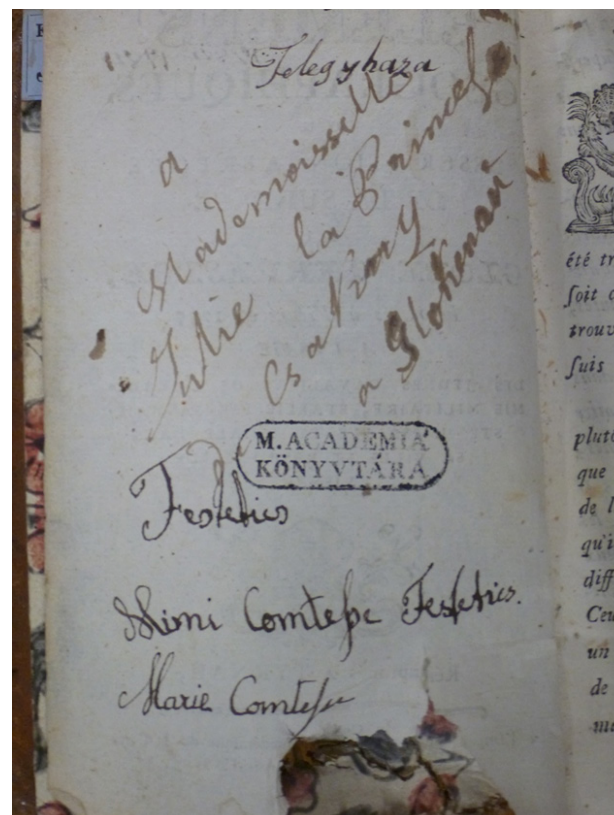 Felegyhaza
a
Mademoisselle
Julie la Princesse
Csakÿ
a Glokenau
M. ACADEMIA
KÖNYVTÁRA
Festetics
Mimi Comtesse Festetics.
Marie Comtesse
été
soit
trouv
suis
pluto
que
de l
qu'i
diff
Ceu
un
de